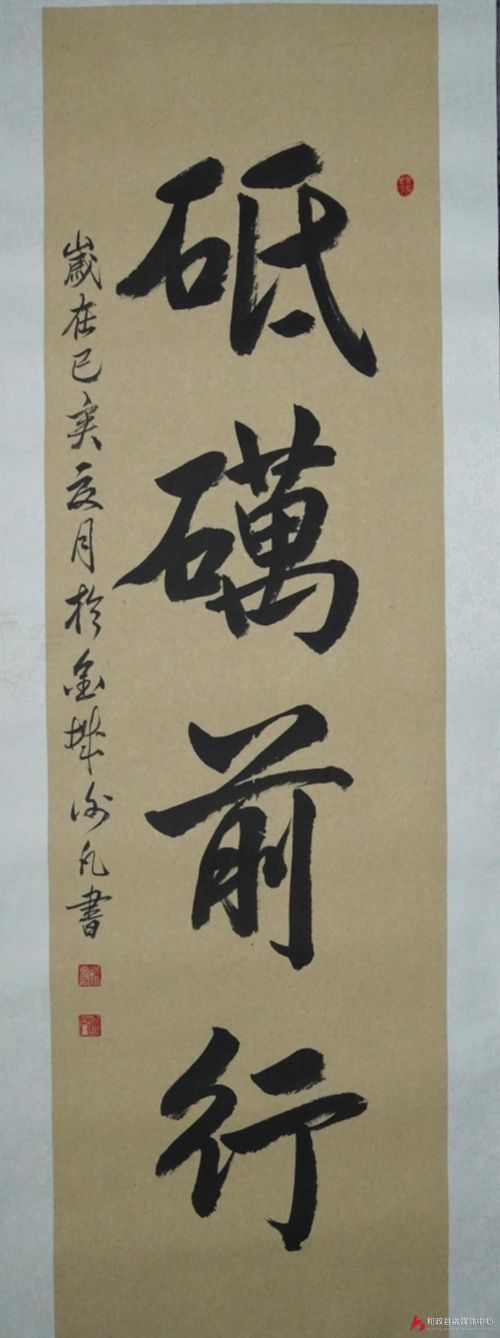 砥礪前行
歲在己亥夏月於金城沙凡書
和政县融媒体中心